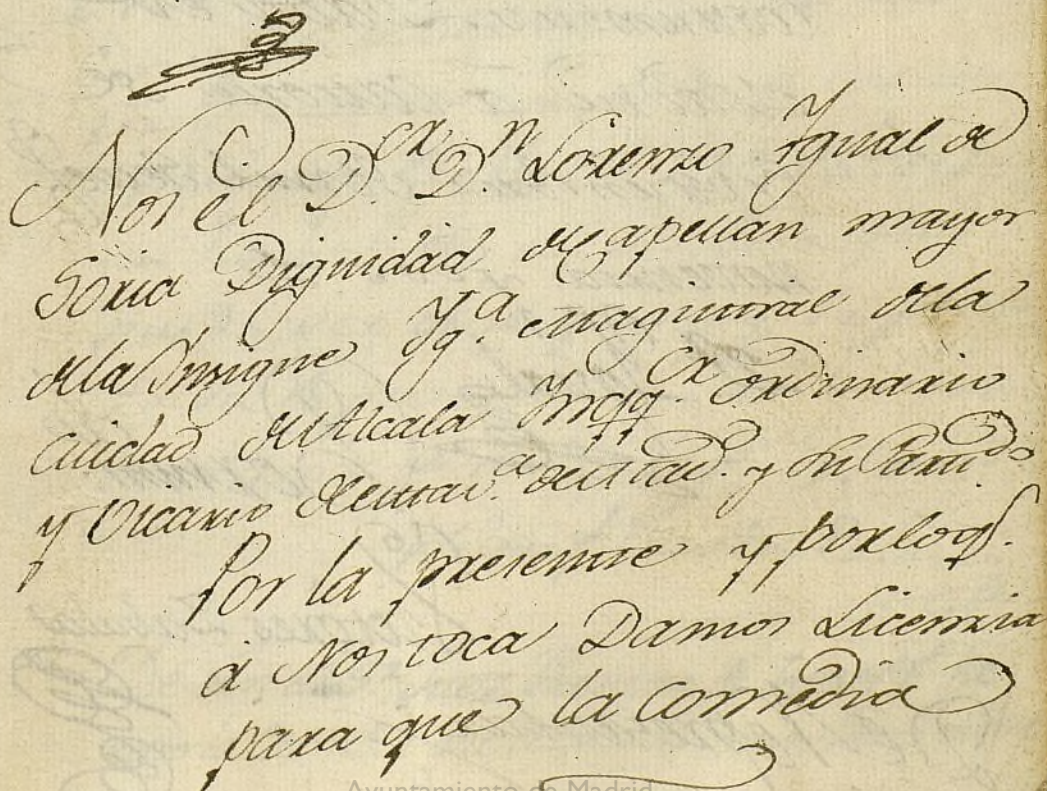 Nos el D.or D.n Lorenzo Ygual de
Soria Dignidad de Capellan mayor
dela Insigne Yg.a Magistral dela
Ciudad de Alcala Inqq.or ordinario
y Vicario de esta V.a de Mad. y su Partido
Por la presente y por lo q.
à Nos toca Damos Licencia
para que la comedia
Ayuntamiento de Madrid